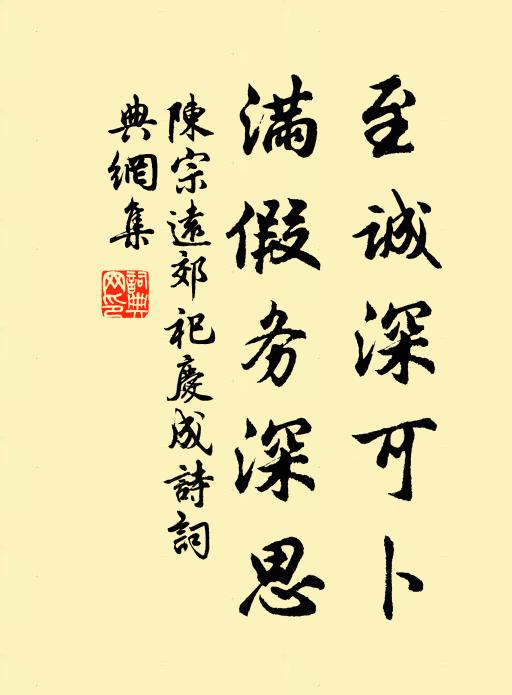 至誠深可卜
滿假务深思
陳宗遠郊祀慶成詩詞
典網集
詞典
网印